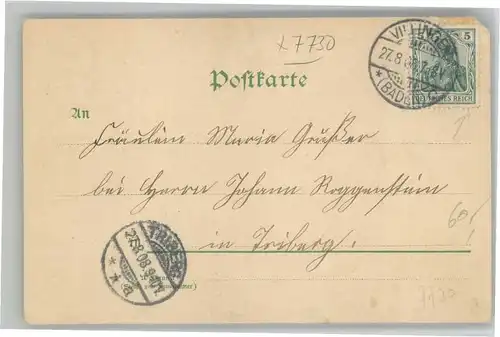 x 7730
Postkarte
VILLINGEN
27.8.
* (BADEN)
5
REICH
An
Fräulein Maria Grußer
bei Herrn Johann Roggenstein
in Triberg.
TRIBERG
27.8.08
* *
60
7730